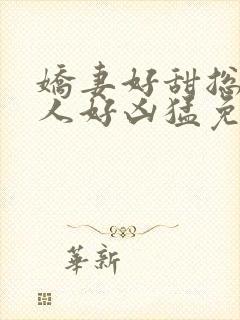 嬌妻好甜揔
人好凶猛免
華新